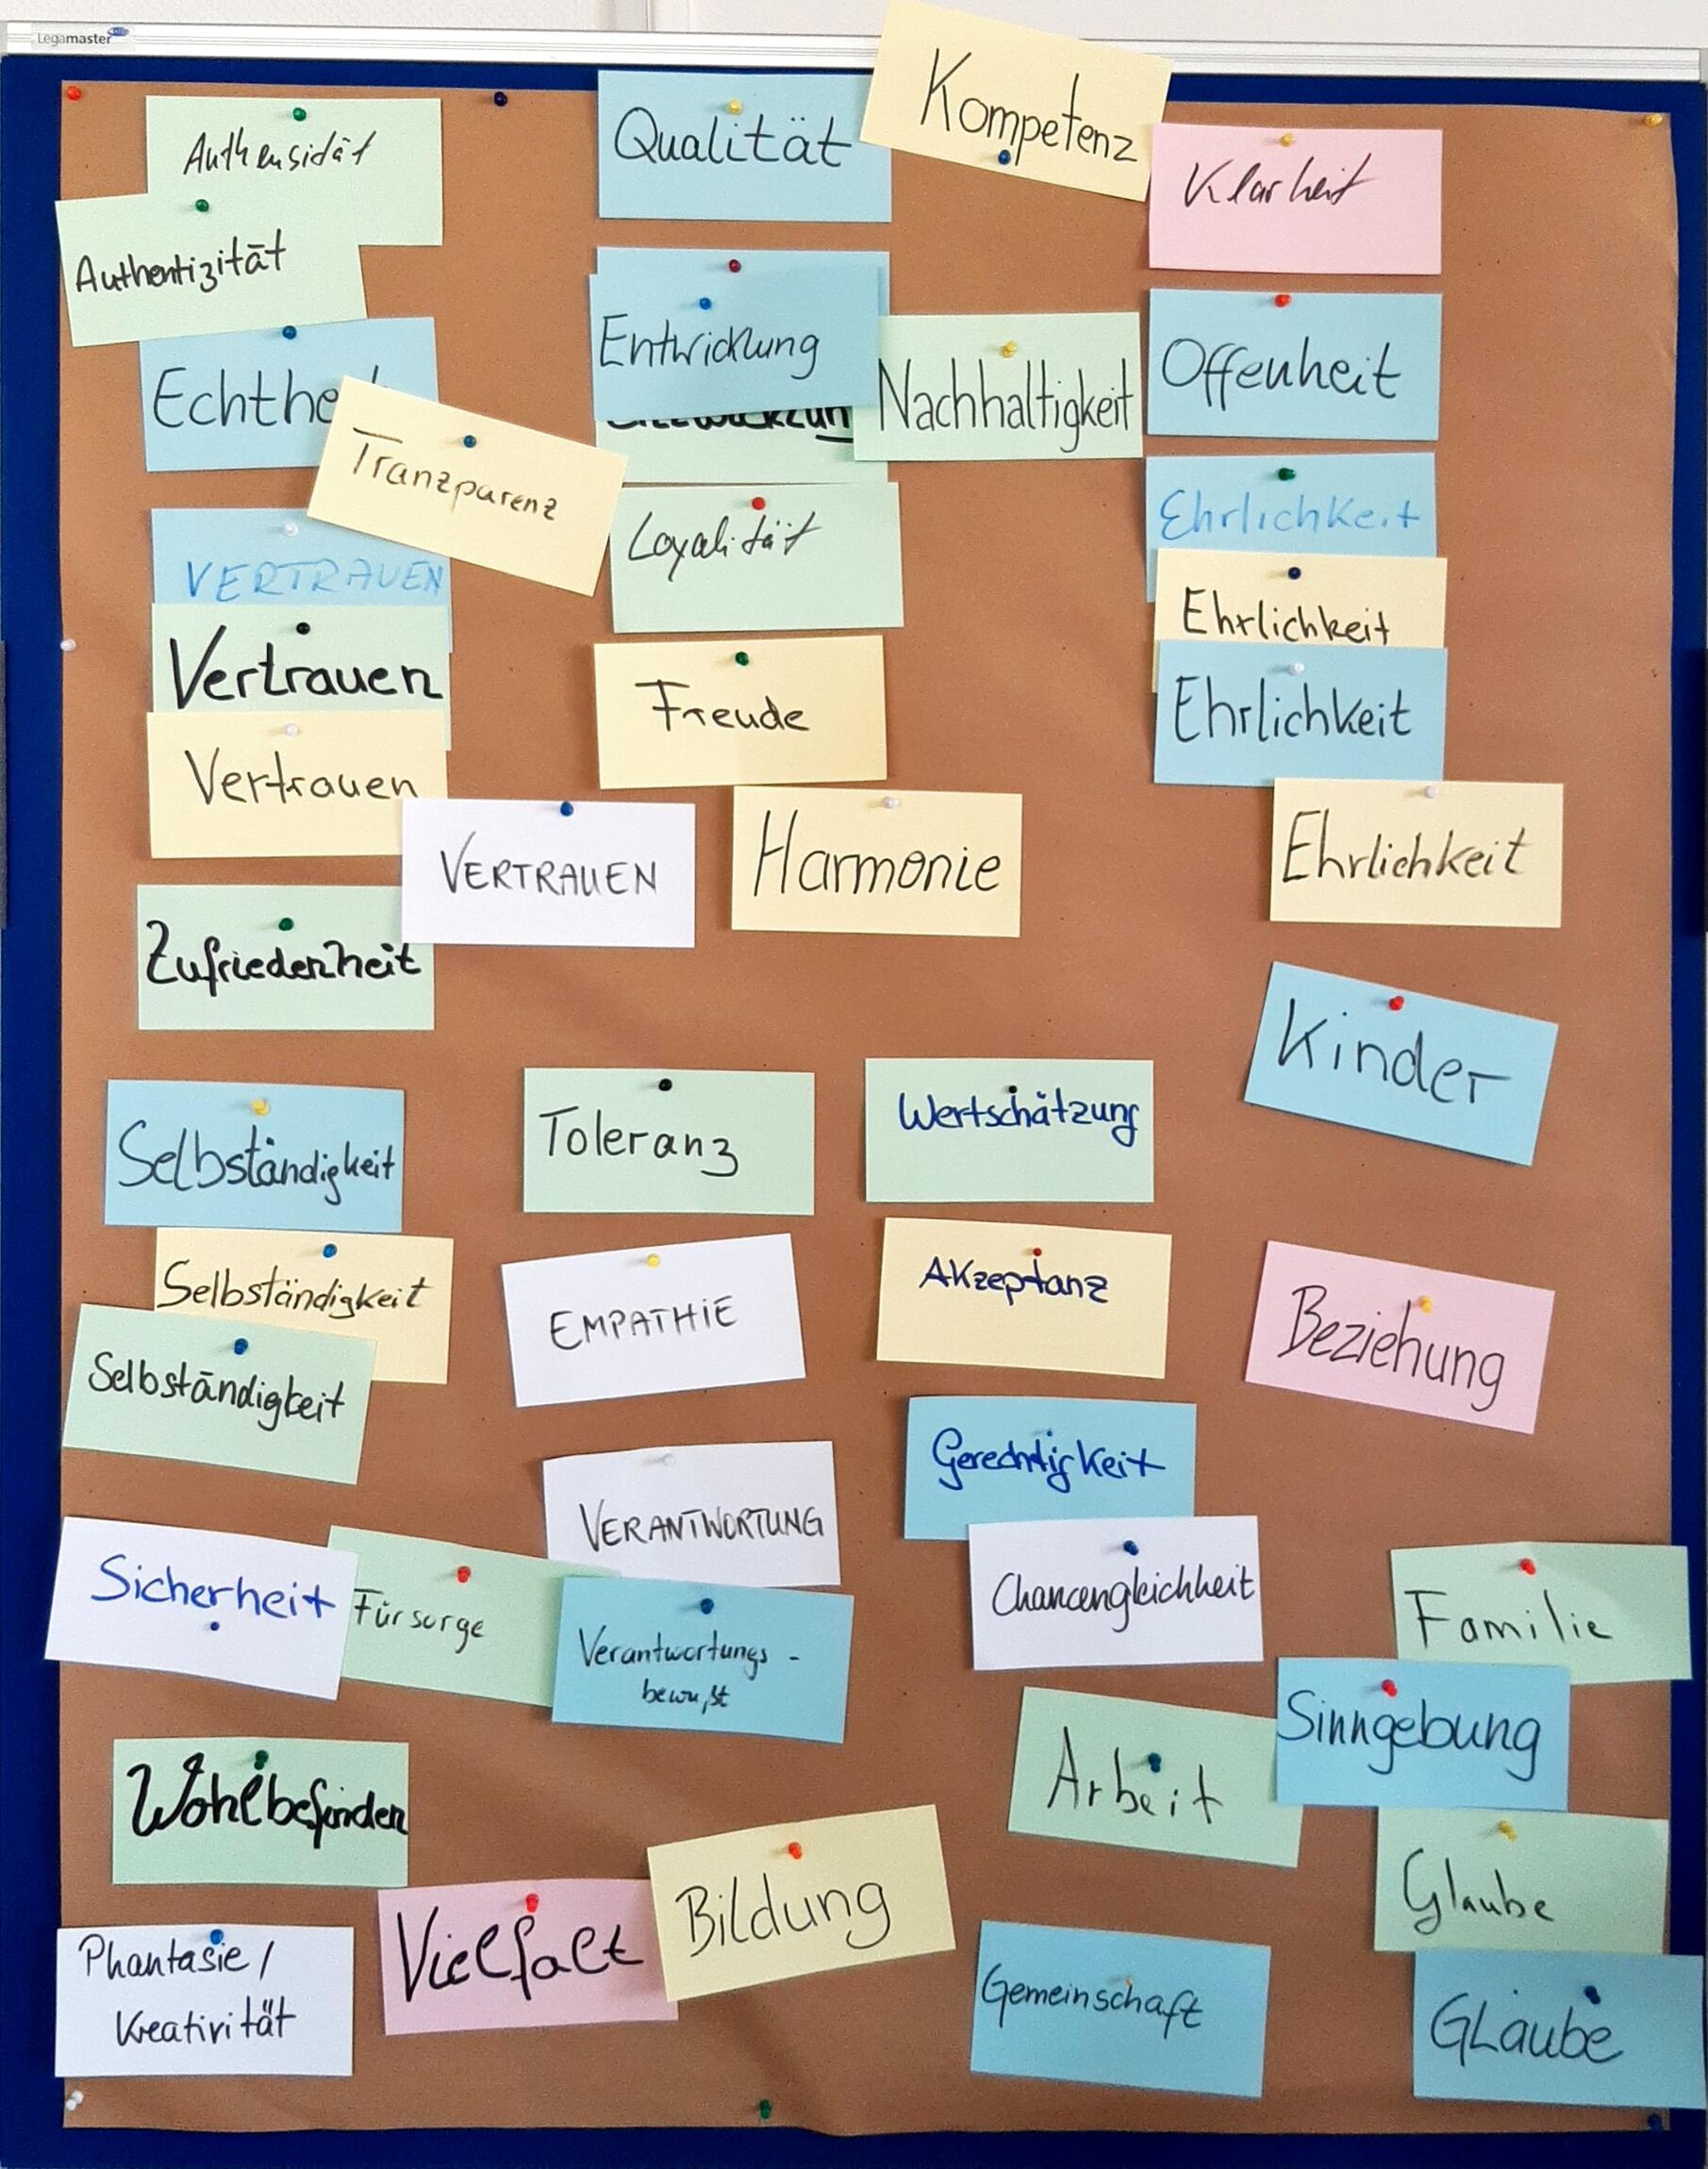 Legamaster
Authensidät
Authentizität
Echthe
Tranzparenz
VERTRAUEN
Vertrauen
Vertrauen
VERTRAUEN
Zufriedenheit
Qualität
Kompetenz
Klarheit
Entwicklung
Nachhaltigkeit
Offenheit
Loyalität
Ehrlichkeit
Ehrlichkeit
Ehrlichkeit
Ehrlichkeit
Freude
Harmonie
Kinder
Selbständigkeit
Selbständigkeit
Selbständigkeit
Toleranz
Wertschätzung
EMPATHIE
Akzeptanz
Beziehung
VERANTWORTUNG
Gerechtigkeit
Chancengleichheit
Sicherheit
Fürsorge
Verantwortungs-
bewußt
Familie
Sinngebung
Arbeit
Glaube
GLaube
Wohlbefinden
Vielfalt
Bildung
Phantasie /
Kreativität
Gemeinschaft